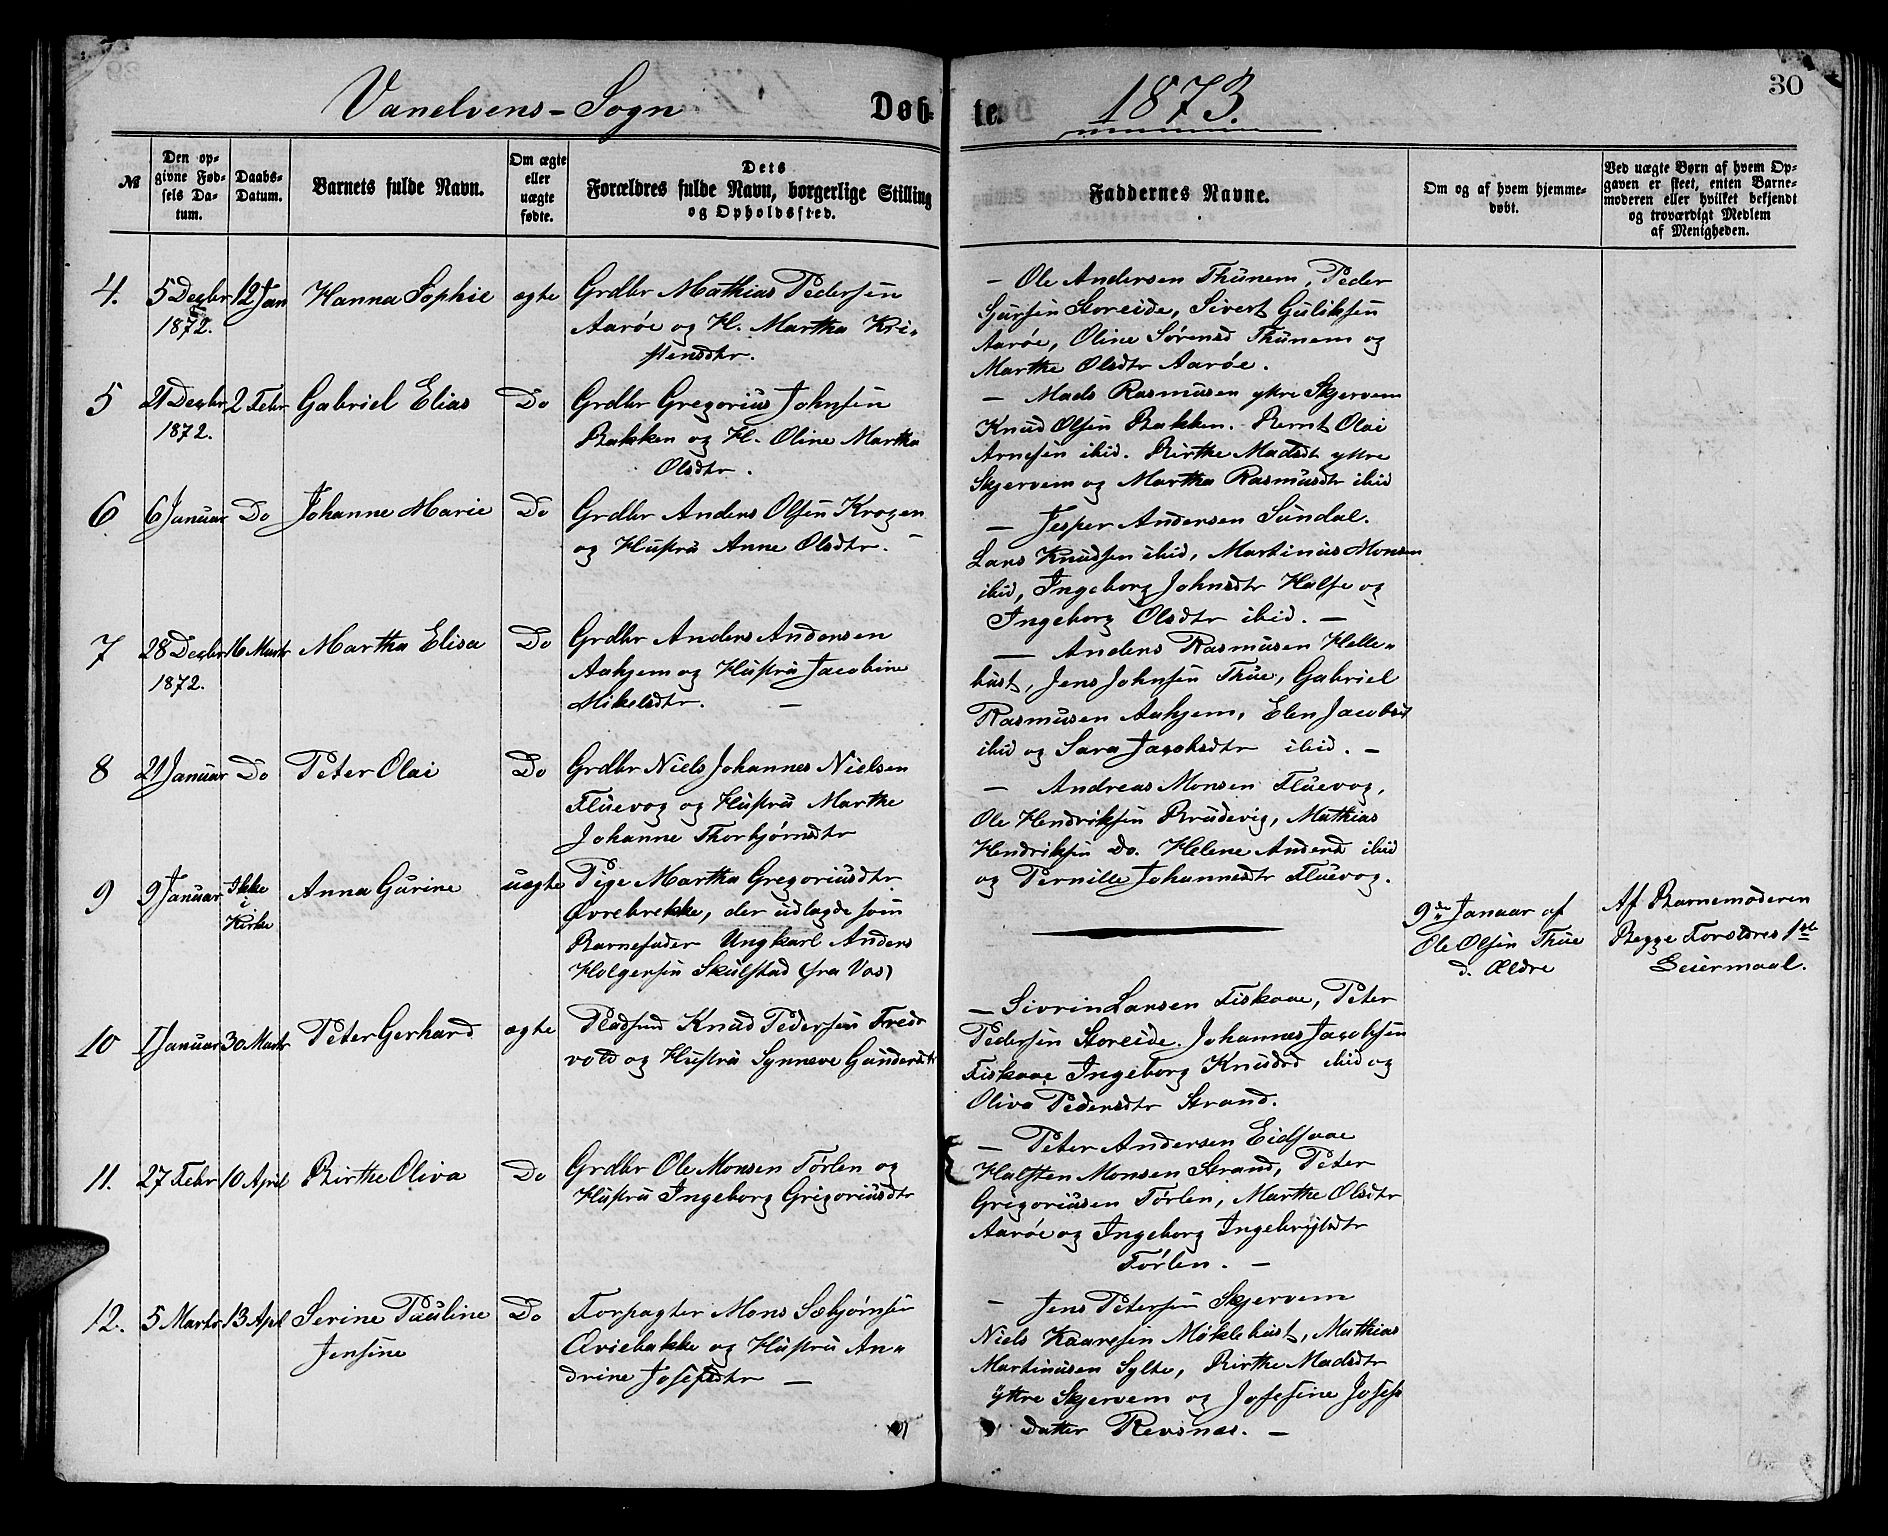 30
Vanelvens-Sogn Døb- te. 1873.
№
Den op-
givne Fød-
sels Da-
tum.
Daabs-
Datum.
Barnets fulde Navn.
Om ægte
eller
uægte
fødte.
Dets
Forældres fulde Navn, borgerlige Stilling
og Opholdssted.
Faddernes Navne.
Om og af hvem hjemme-
døbt.
Ved uægte Børn af hvem Op-
gaven er skeet, enten Barne-
moderen eller hvilket bekjendt
og troværdigt Medlem
af Menigheden.
4. 5 Decbr 12 Jan Hanna Sophie ægte Grdbr Mathias Pedersen
1872. Aarøe og H. Martha Kri-
stensdtr.
— Ole Andersen Thunem, Peder
Gursen Storeide, Sivert Guliksen
Aarøe, Oline Sørensd Thunem og
Marthe Olsdtr Aarøe.
5 21 Decbr 2 Febr Gabriel Elias Do Grdbr Gregorius Johnsen
1872. Bakken og H. Oline Martha
Olsdtr.
— Mads Rasmusen ytre Skjervem
Knud Olsen Bakken. Bernt Olai
Arnesen ibid. Birthe Madsdt ytre
Skjervem og Martha Rasmusdtr ibid
6. 6 Januar Do Johanne Marie Do Grdbr Anders Olsen Krogen
og Hustru Anne Olsdtr. —
— Jesper Andersen Sundal.
Lars Knudsen ibid, Martinus Monsen
ibid, Ingeborg Johnsdtr Halse og
Ingeborg Olsdtr ibid. —
7 28 Decbr 16 Marts Martha Elisa Do Grdbr Anders Andersen
1872. Aahjem og Hustru Jacobine
Mikelsdtr. —
— Anders Rasmusen Helle-
hust, Jens Johnsen Thue, Gabriel
Rasmusen Aahjem, Elen Jacobsd
ibid og Sara Jacobsdtr ibid. —
8 21 Januar Do Peter Olai Do Grdbr Niels Johannes Nielsen
Fluevog og Hustru Marthe
Johanne Thorbjørnsdtr
— Andreas Monsen Fluevog,
Ole Hendriksen Brudevig, Mathias
Hendriksen Do. Helene Andersd ibid
og Pernille Johannesdtr Fluevog.
9 9 Januar Ikke i Kirke Anna Gurine uægte Pige Martha Gregoriusdtr
Øvrebrekke, der udlagde som
Barnefader Ungkarl Anders
Holgersen Skulstad (fra Vos)
9de Januar af
Ole Olsen Thue
d. Ældre
Af Barnemoderen
Begge Forældres 1ste
Leiermaal.
10 1 Januar 30 Marts Peter Gerhard ægte Pladsmd Knud Pedersen Frede
vold og Hustru Synneve Gundersdt
— Sivrin Larsen Fiskaae, Peter
Pedersen Storeide. Johannes Jacobsen
Fiskaae Ingeborg Knudsd ibid og
Oliva Pedersdtr Strand.
11. 27 Febr 10 April Birthe Oliva Do Grdbr Ole Monsen Førlen og
Hustru Ingeborg Grigoriusdtr
— Peter Andersen Eidsaae
Halsten Monsen Strand, Peter
Grigoriusen Førlen, Marthe Olsdtr
Aarøe og Ingeborg Ingebrigtsdtr
Førlen. —
12. 5 Marts 13 Apl Serine Pauline Do Forpagter Mons Sæbjørnsen
Jensine Øviebakke og Hustru An-
drine Josefsdtr —
— Jens Petersen Skjervem
Niels Kaaresen Møklebust, Mathias
Martinusen Sylte, Birthe Madsdtr
ytre Skjervem og Josefine Josefs
datter Revsnes. —